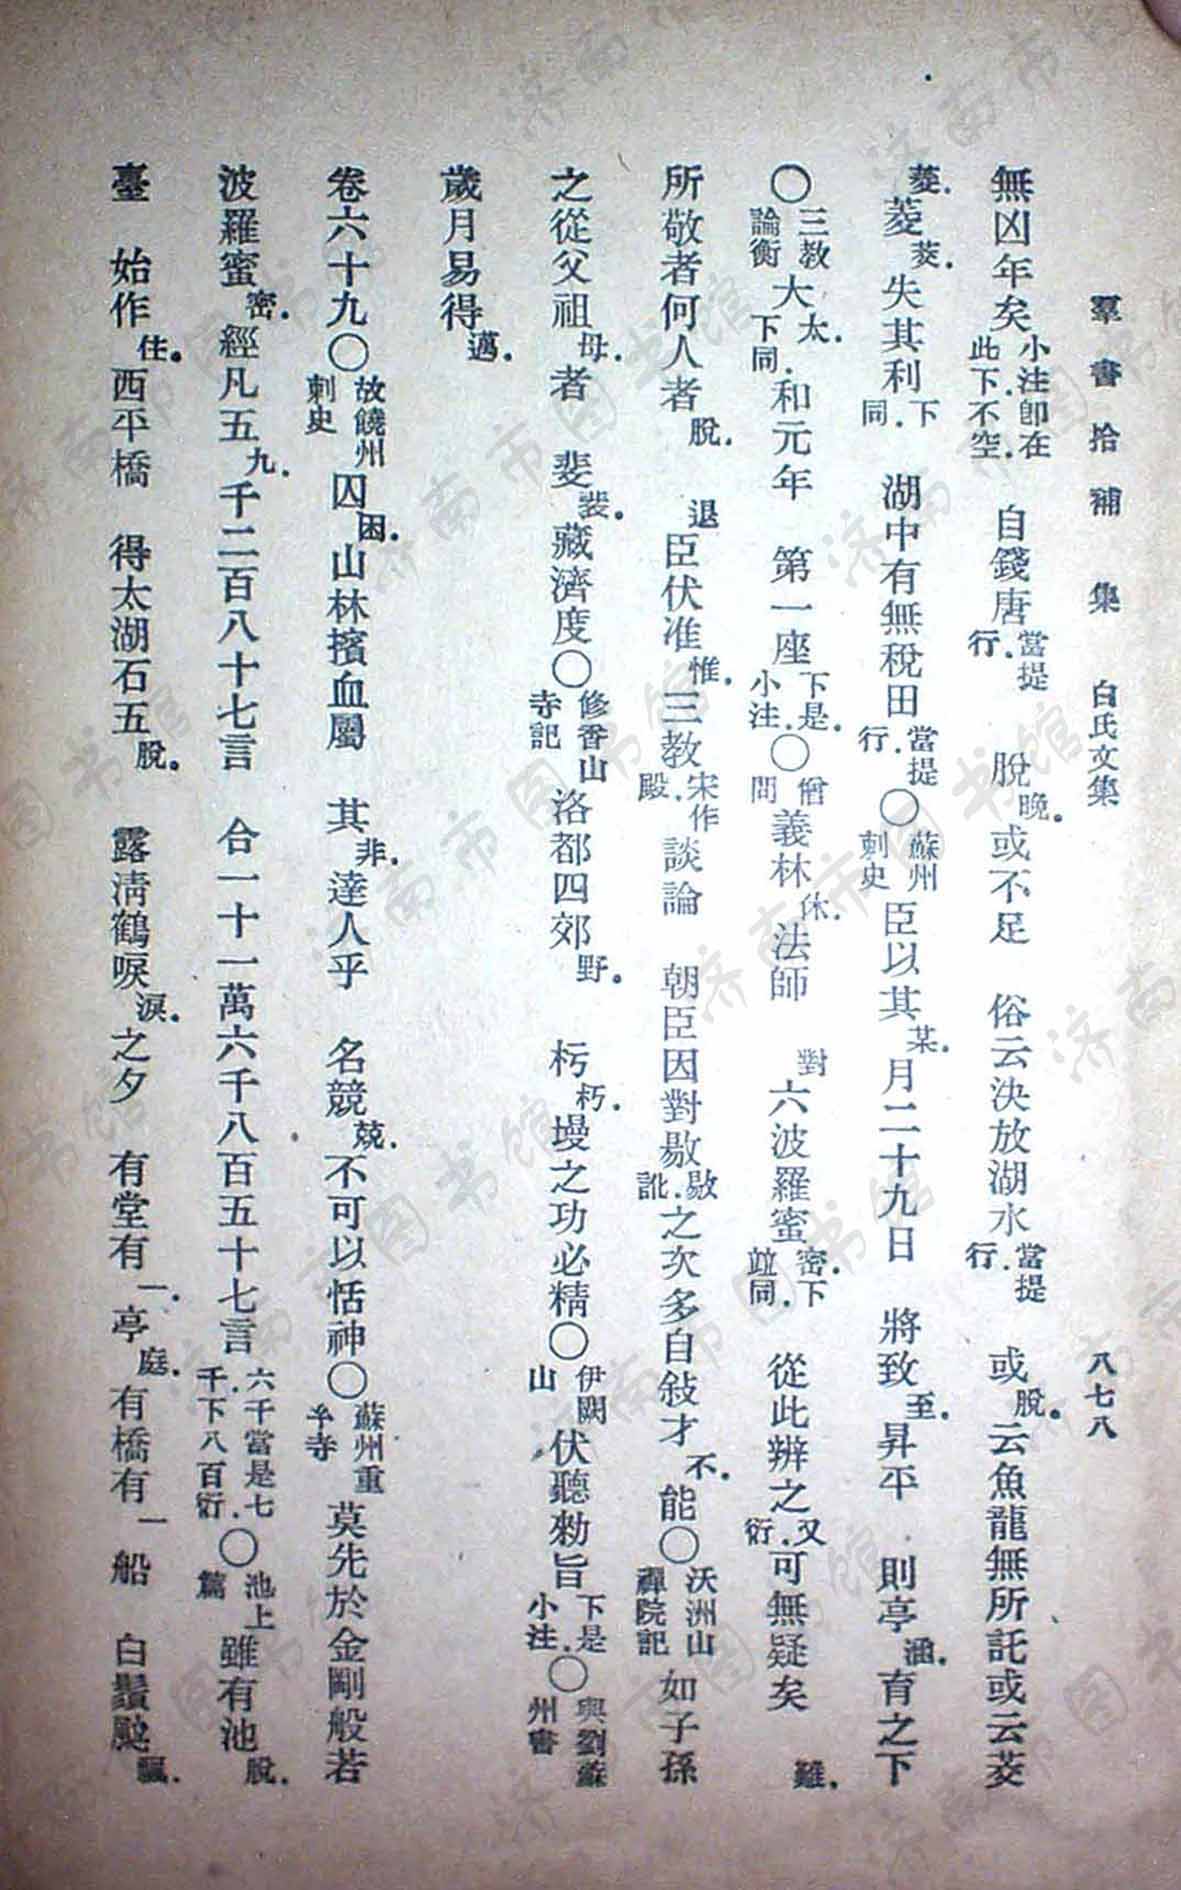 羣書拾補　集　白氏文集　八七八
無凶年矣小注卽在此下.不空.　自錢唐當提行.　脫晚.或不足　俗云決放湖水當提行.　或脫.云魚龍無所託或云茭
菱.菱茭.失其利下同.　湖中有無稅田當提行.〇蘇州刺史臣以其某.月二十九日　將致至.昇平　則亭涵.育之下
〇三教論衡大太.下同.和元年　第一座下是小注.〇僧問義林休.法師　對六波羅蜜密.下竝同.　從此辨之又衍.可無疑矣　難.
所敬者何人者脫.　退臣伏准惟.三教宋作殿.談論　朝臣因對敭敭訛.之次多自敍才不.能〇沃洲山禪院記如子孫
之從父祖母.者　斐裴.藏濟度〇修香山寺記洛都四郊野.　杇朽.墁之功必精〇伊闕山伏聽勑旨下是小注.〇與劉蘇州書
歲月易得邁.
卷六十九〇故饒州刺史囚困.山林擯血屬　其非.達人乎　名競兢.不可以恬神〇蘇州重予寺莫先於金剛般若
波羅蜜密.經凡五九.千二百八十七言　合一十一萬六千八百五十七言六千當是七千.下八百衍.〇池上篇雖有池脫.
臺　始作住.西平橋　得太湖石五脫.　露清鶴唳淚.之夕　有堂有一.亭庭.有橋有一船　白鬚颩飄.